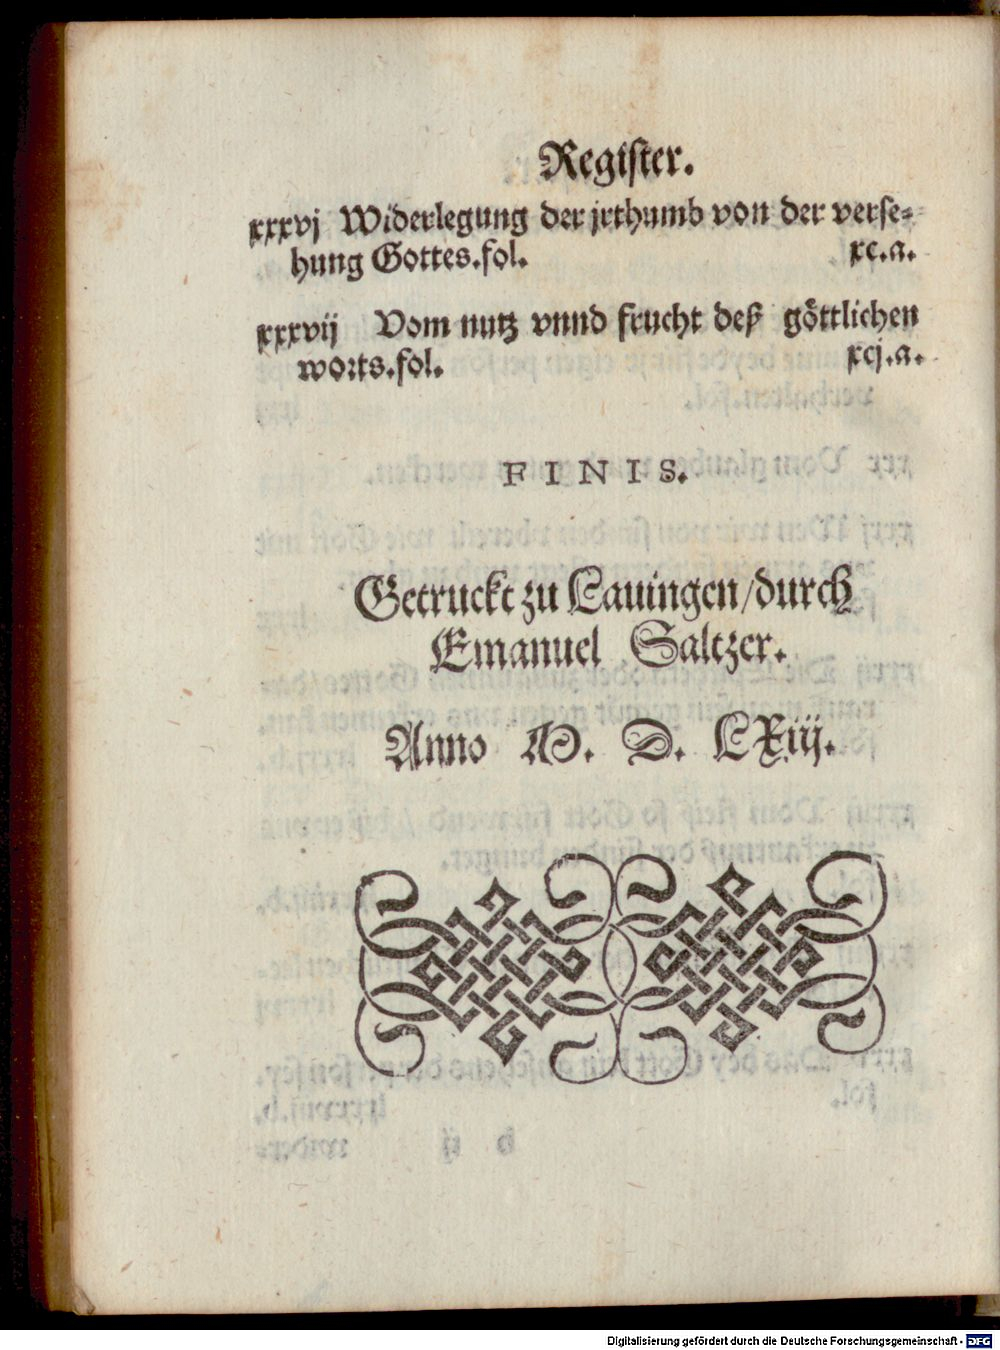 Register.
xxxvj Widerlegung der jrthumb von der verse-
hung Gottes.fol. xc.a.
xxxvij Vom nutz vnnd frucht deß göttlichen
worts.fol. xcj.a.
FINIS.
Getruckt zu Lauingen/durch
Emanuel Saltzer.
Anno M. D. LXiij.
Digitalisierung gefördert durch die Deutsche Forschungsgemeinschaft - DFG